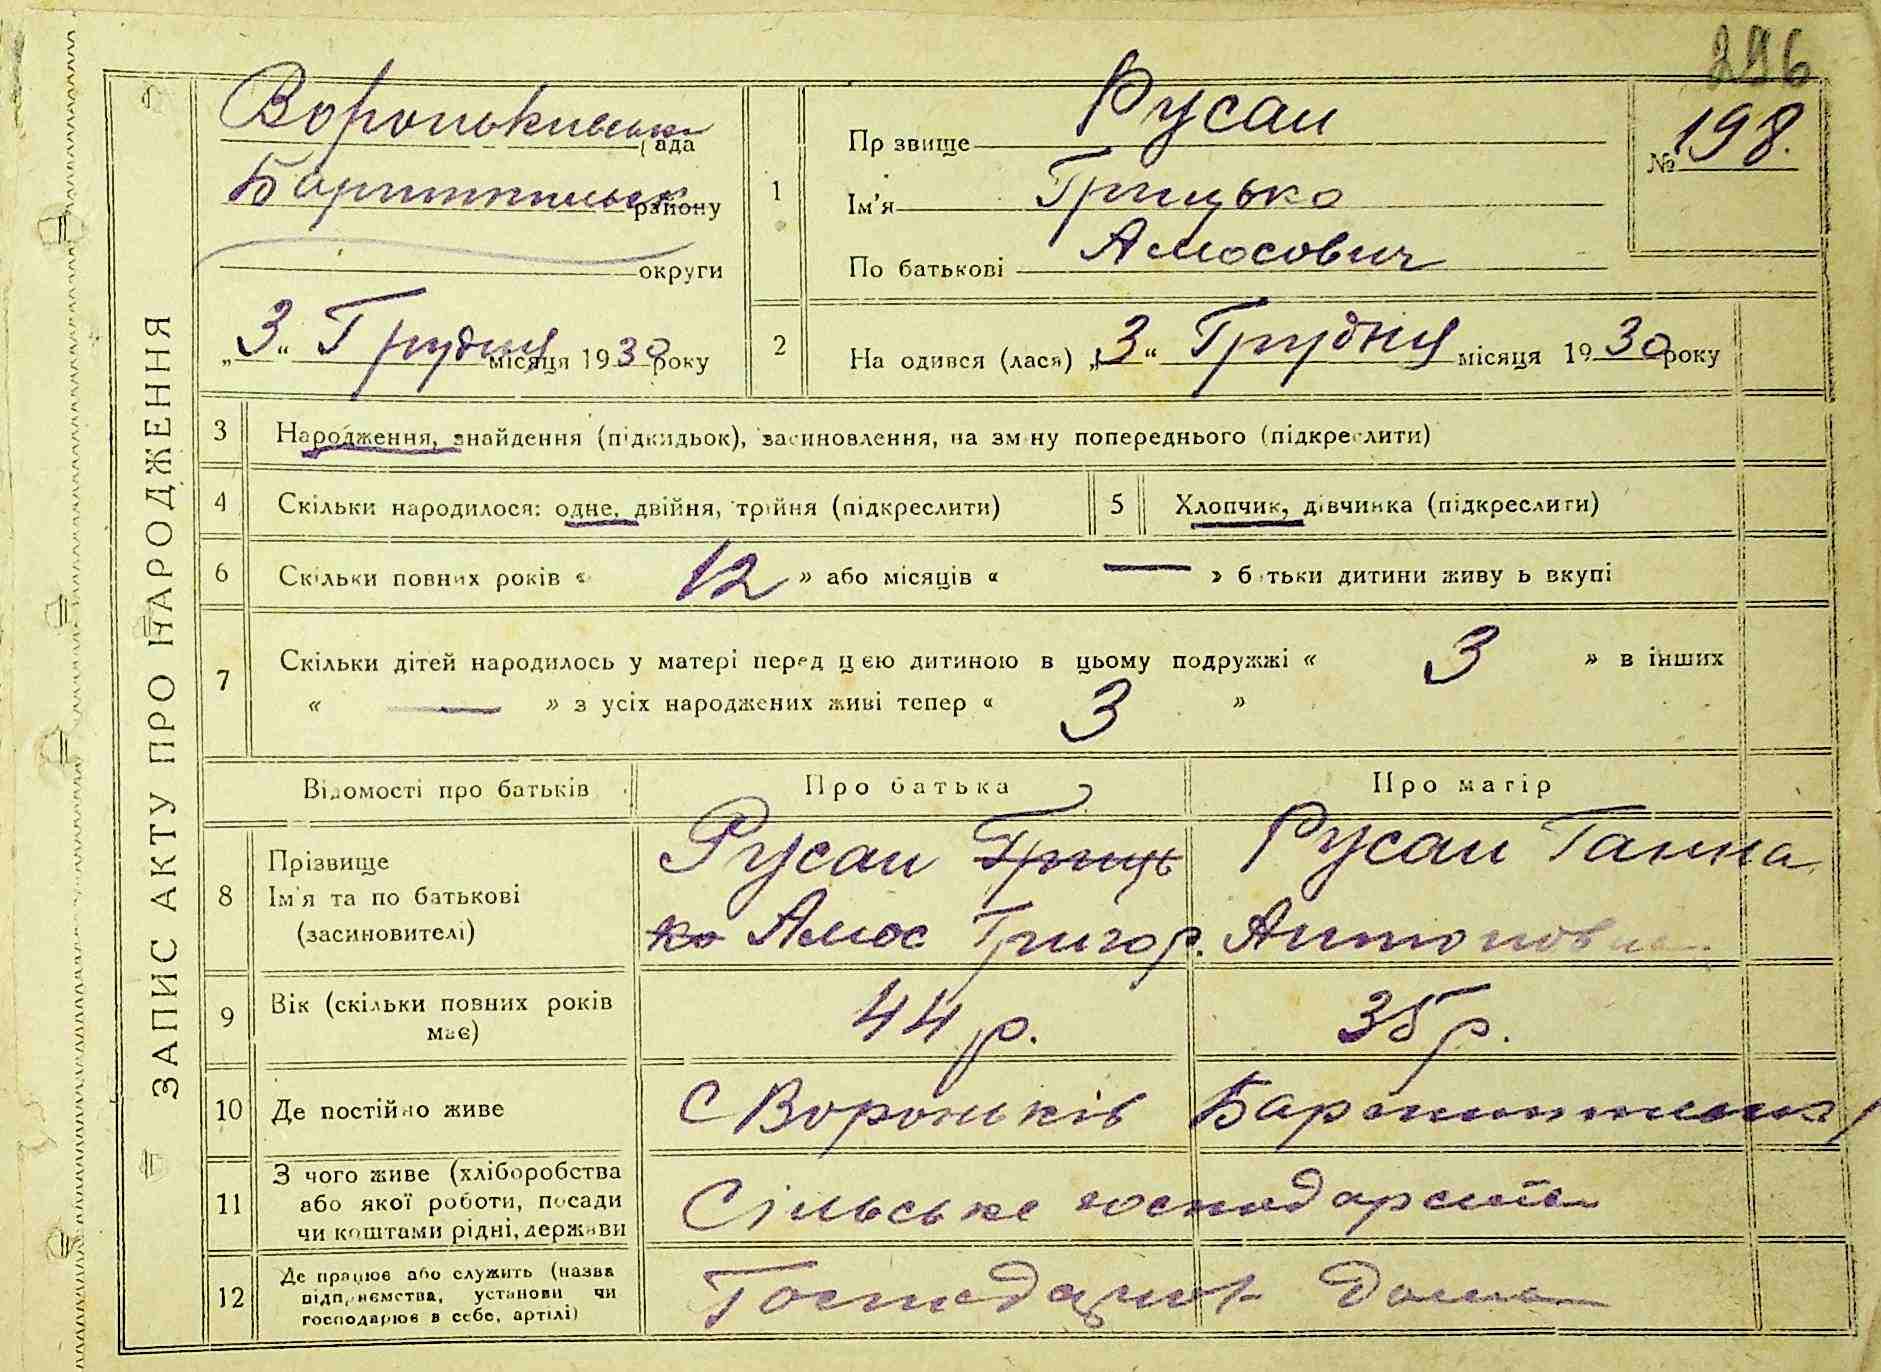 296
ЗАПИС АКТУ ПРО НАРОДЖЕННЯ
Вороньківська рада
Бориспільськ району
округи
„3“ Грудня місяця 1930 року
1
Прізвище Русан
Ім'я Грицько
По батькові Амосович
№ 198.
2
Народився (лася) „3“ Грудня місяця 1930 року
3
Народження, знайдення (підкидьок), засиновлення, на зміну попереднього (підкреслити)
4
Скільки народилося: одне, двійня, трійня (підкреслити)
5
Хлопчик, дівчинка (підкреслити)
6
Скільки повних років « 12 » або місяців « — » батьки дитини живуть вкупі
7
Скільки дітей народилось у матері перед цією дитиною в цьому подружжі « 3 » в інших
« — » з усіх народжених живі тепер « 3 »
Відомості про батьків
Про батька
Про матір
8
Прізвище
Ім'я та по батькові
(засиновителі)
Русан Гриць
ко Амос Григор.
Русан Ганна
Антоновна
9
Вік (скільки повних років
має)
44 р.
35 р.
10
Де постійно живе
С Вороньків Бориспільськ
11
З чого живе (хліборобства
або якої роботи, посади
чи коштами рідні, держави
Сільське господарство
12
Де працює або служить (назва
підприємства, установи чи
господарює в себе, артілі)
Господарює дома